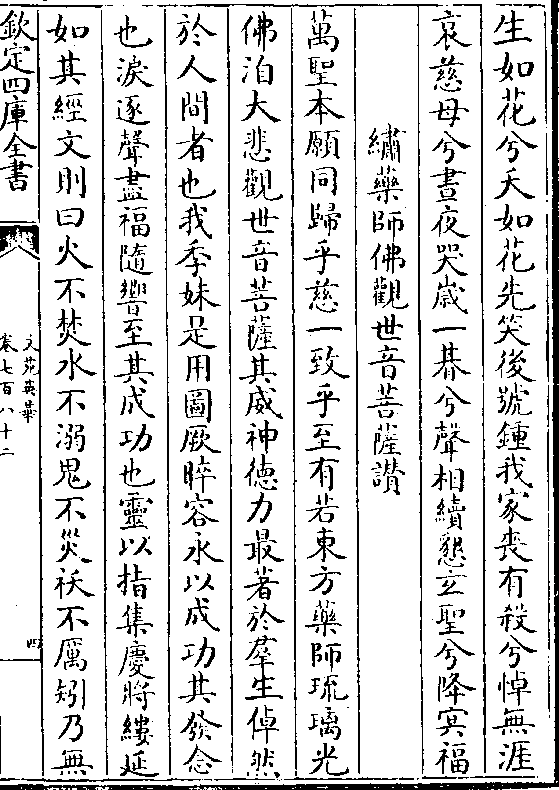 生如花兮夭如花先笑後號鍾我家喪有殺兮悼無涯
哀慈母兮晝夜哭歲一朞兮聲相續懇玄聖兮降冥福
繡藥師佛觀世音菩薩讚
萬聖本願同歸乎慈一致乎至有若東方藥師琉璃光
佛洎大悲觀世音菩薩其威神德力最著於羣生倬然
於人間者也我季妹是用圖厥睟容永以成功其發念
也淚逐聲盡福隨響至其成功也靈以指集慶將縷延
如其經文則曰火不焚水不溺鬼不災祅不厲矧乃無
欽定四庫全書
文苑英華
卷七百八十二
四